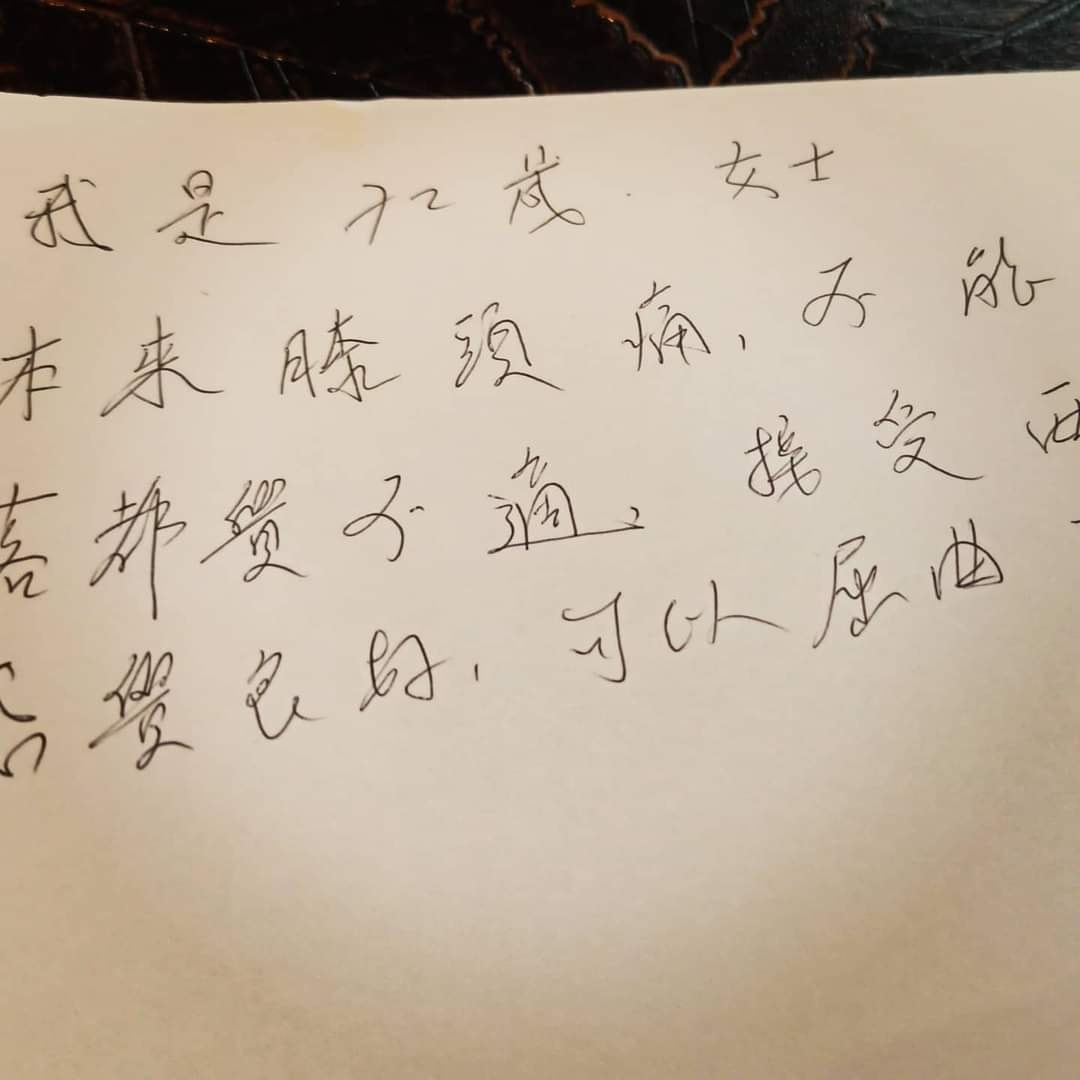 我是72歲 女士
本来膝頭痛，不能
都覺不適，接受兩
覺良好，可以屈曲